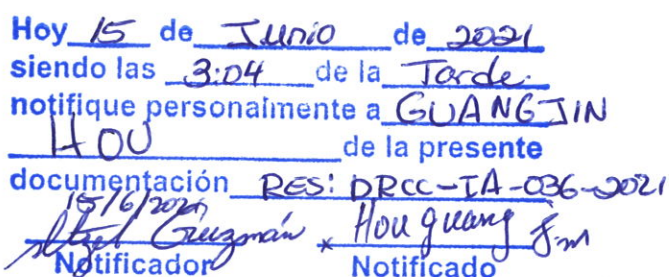 Hoy 15 de Junio de 2021
siendo las 3:04 de la Tarde.
notifique personalmente a GUANGJIN
HOU de la presente
documentación RES: DRCC-IA-036-2021
15/6/2021
Itzel Guzmán x Hou guang Jin
Notificador Notificado